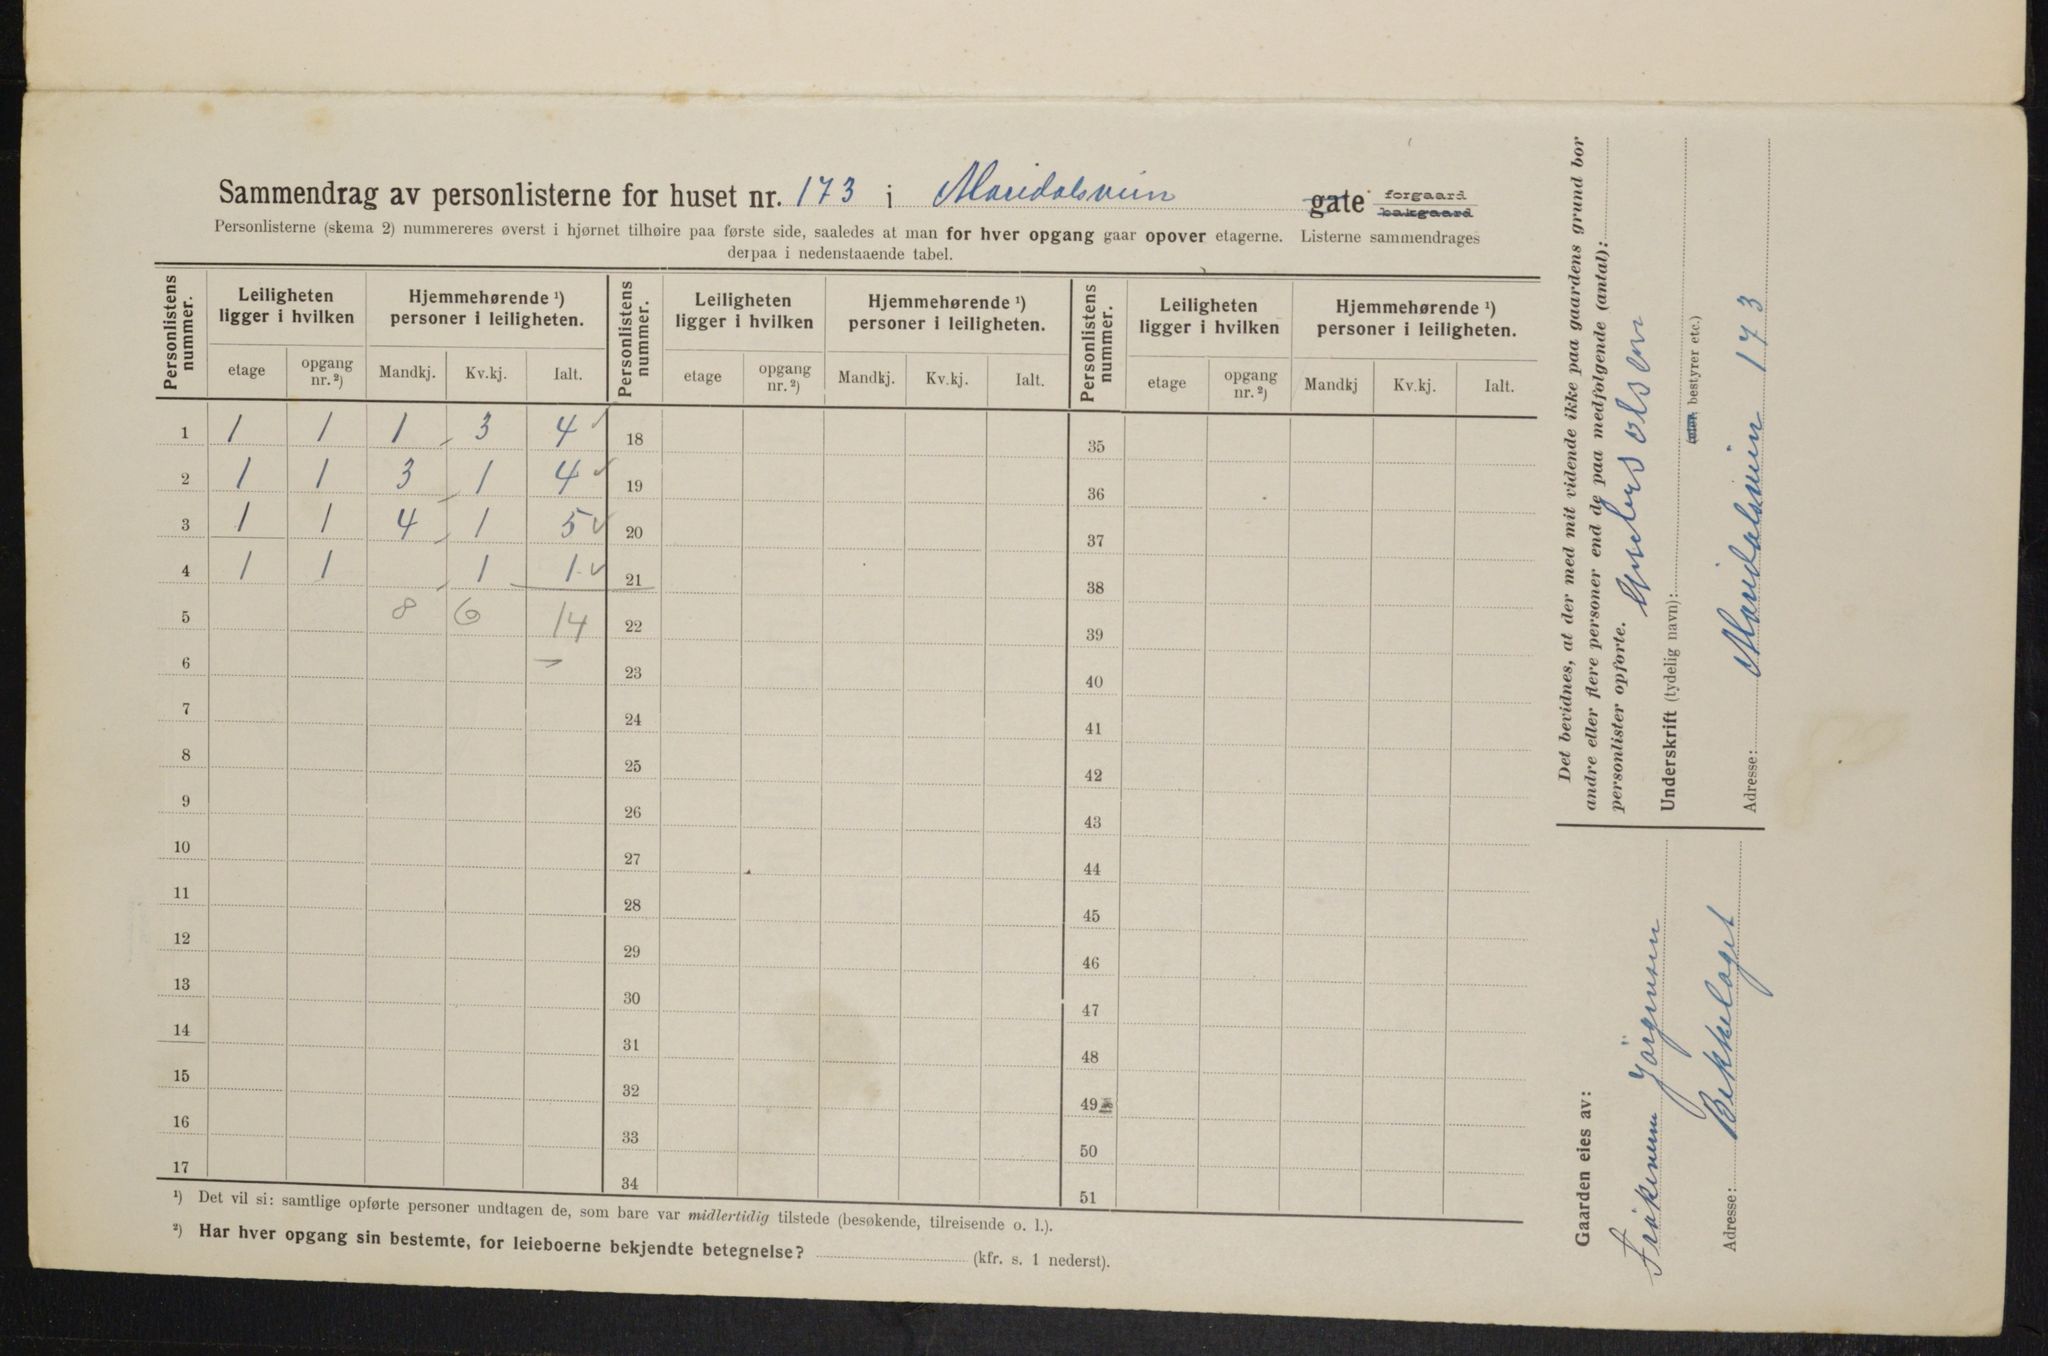 Sammendrag av personlisterne for huset nr. 173 i Maridalsveien gate forgaard bakgaard
Personlisterne (skema 2) nummereres øverst i hjørnet tilhøire paa første side, saaledes at man for hver opgang gaar opover etagerne. Listerne sammendrages
derpaa i nedenstaaende tabel.
Personlistens nummer. Leiligheten ligger i hvilken Hjemmehørende ¹) personer i leiligheten. Personlistens nummer. Leiligheten ligger i hvilken Hjemmehørende ¹) personer i leiligheten. Personlistens nummer. Leiligheten ligger i hvilken Hjemmehørende ¹) personer i leiligheten.
etage opgang nr. ²) Mandkj. Kv.kj. Ialt. etage opgang nr. ²) Mandkj. Kv.kj. Ialt. etage opgang nr. ²) Mandkj Kv.kj. Ialt.
1 1 1 1 3 4 18 35
2 1 1 3 1 4 19 36
3 1 1 4 1 5 20 37
4 1 1 1 1 21 38
5 8 6 14 22 39
6 23 40
7 24 41
8 25 42
9 26 43
10 27 44
11 28 45
12 29 46
13 30 47
14 31 48
15 32 49
16 33 50
17 34 51
¹) Det vil si: samtlige opførte personer undtagen de, som bare var midlertidig tilstede (besøkende, tilreisende o. l.).
²) Har hver opgang sin bestemte, for leieboerne bekjendte betegnelse? (kfr. s. 1 nederst).
Det bevidnes, at der med mit vidende ikke paa gaardens grund bor
andre eller flere personer end de paa medfølgende (antal):
personlister opførte.
Olsen
Underskrift (tydelig navn): (eier, bestyrer etc.)
Adresse: Maridalsveien 173
Gaarden eies av:
Frøkenen Jörgensen
Adresse: Bekkelaget